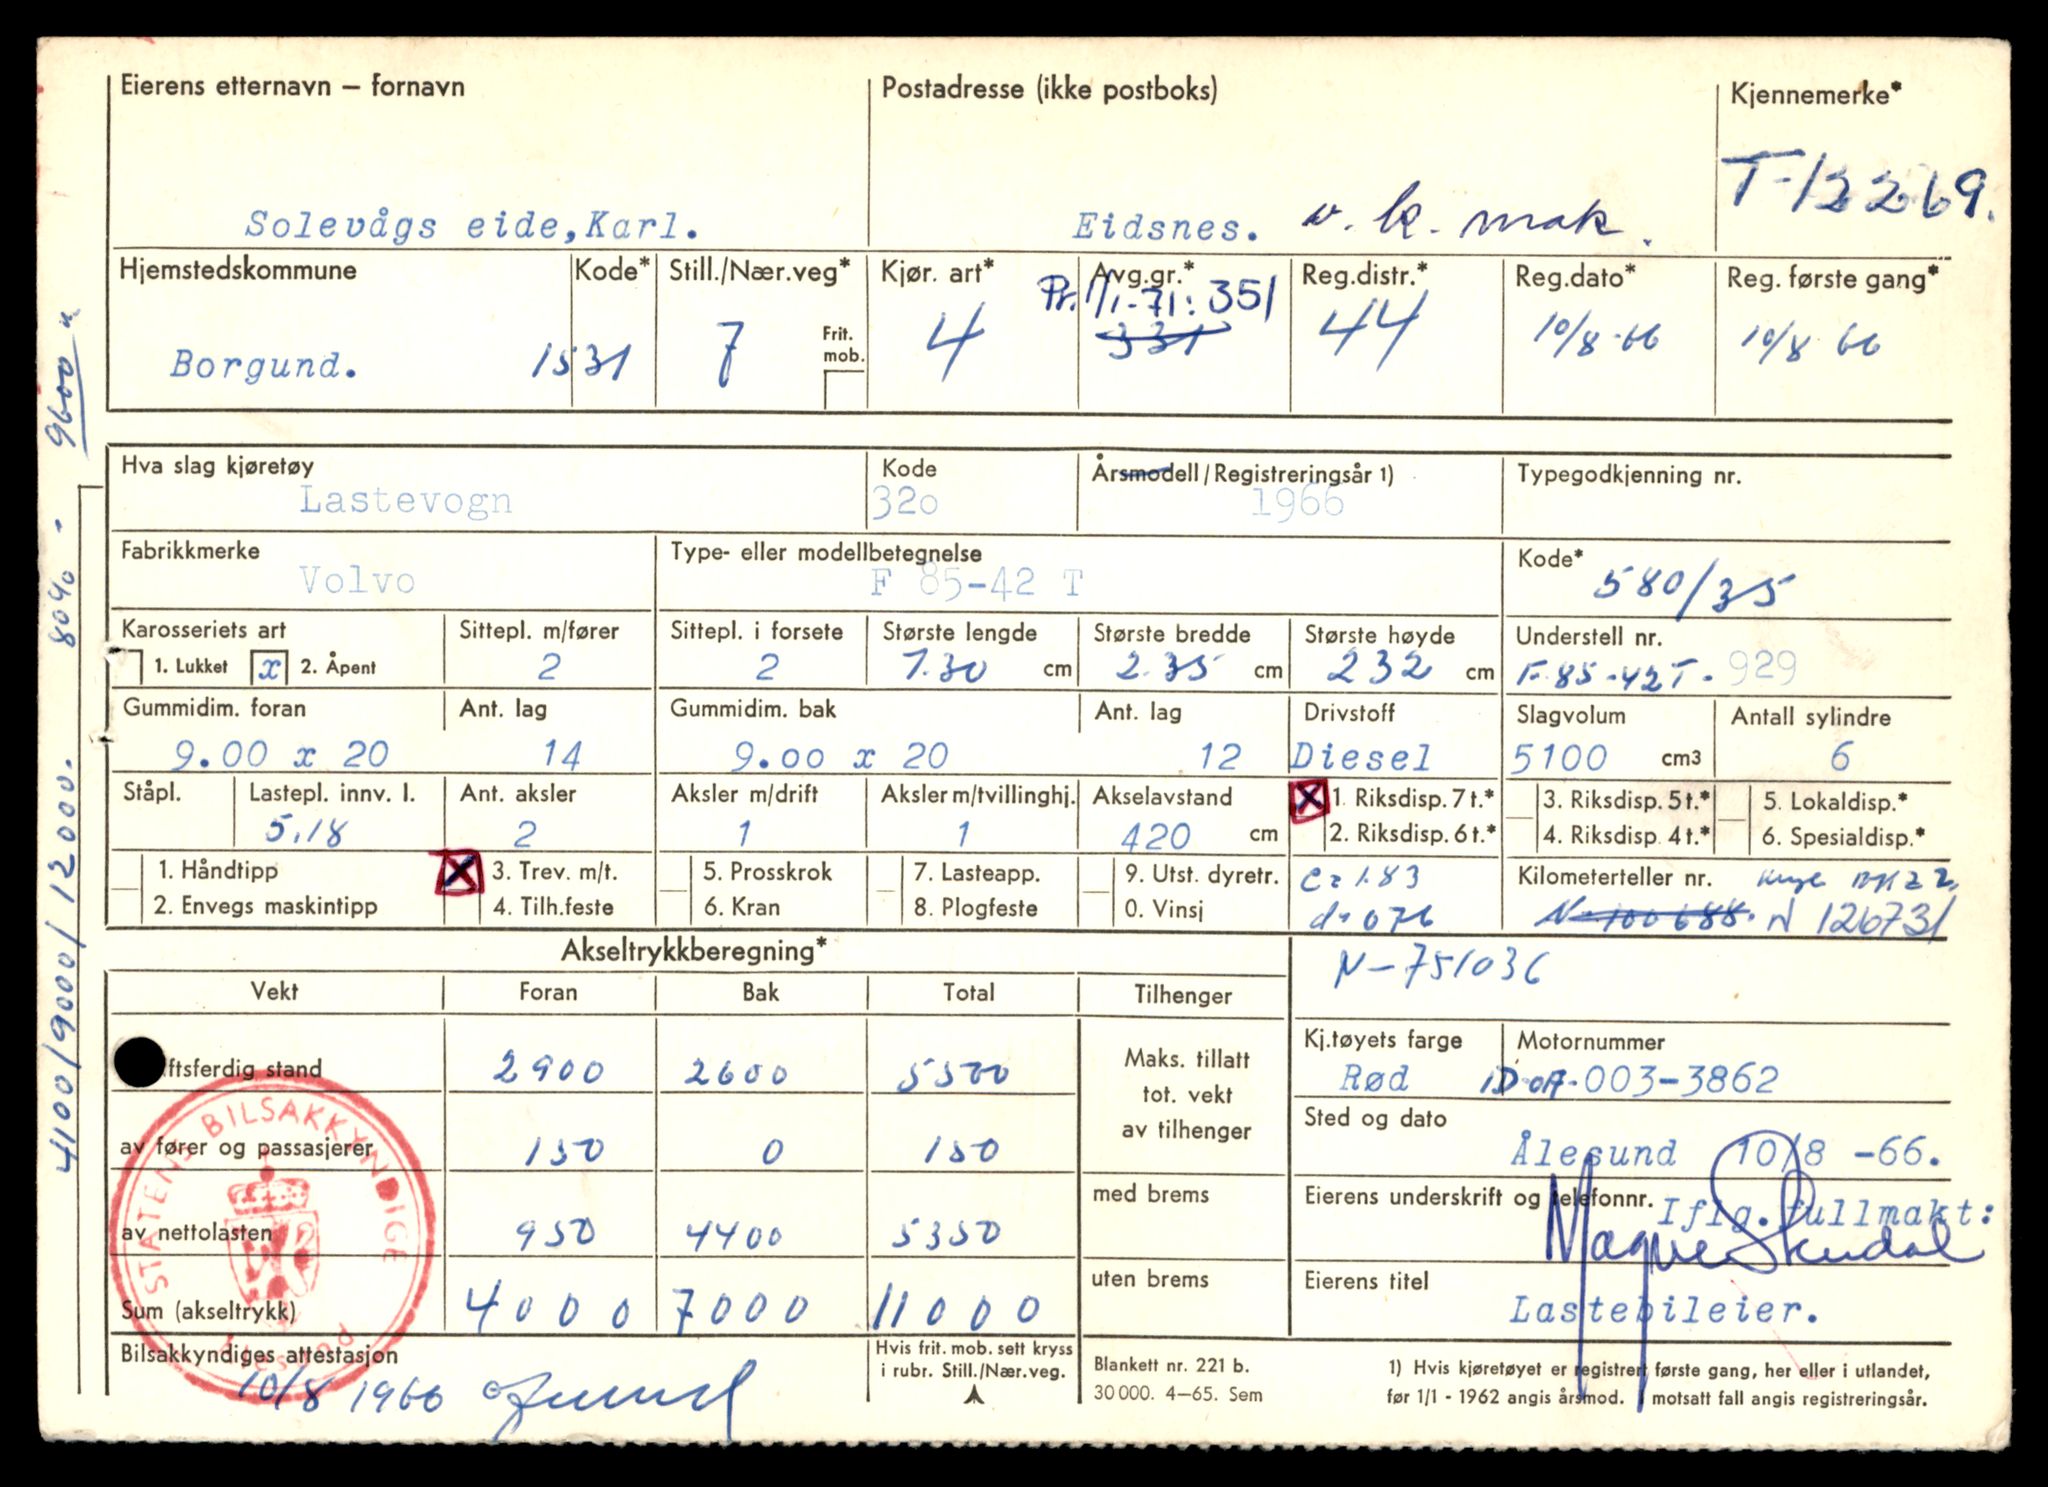 Eierens etternavn – fornavn
Postadresse (ikke postboks)
Kjennemerke*
Solevågs eide, Karl.
Eidsnes. v. k. mak.
T-12269.
Hjemstedskommune
Kode*
Still./Nær.veg*
Kjør. art*
Avg.gr.*
Reg.distr.*
Reg.dato*
Reg. første gang*
Borgund.
1531
7
Frit. mob.
4
Pr. 1/1-71: 351
331
44
10/8-66
10/8 66
Hva slag kjøretøy
Kode
Årsmodell/Registreringsår 1)
Typegodkjenning nr.
Lastevogn
320
1966
Fabrikkmerke
Type- eller modellbetegnelse
Kode*
Volvo
F 85-42 T
580/35
Karosseriets art
Sittepl. m/fører
Sittepl. i forsete
Største lengde
Største bredde
Største høyde
Understell nr.
1. Lukket
x 2. Åpent
2
2
7.30 cm
2.35 cm
232 cm
F.85-42T. 929
Gummidim. foran
Ant. lag
Gummidim. bak
Ant. lag
Drivstoff
Slagvolum
Antall sylindre
9.00 x 20
14
9.00 x 20
12
Diesel
5100 cm3
6
Ståpl.
Lastepl. innv. l.
Ant. aksler
Aksler m/drift
Aksler m/tvillinghj.
Akselavstand
X 1. Riksdisp. 7 t.*
3. Riksdisp. 5 t.*
5. Lokaldisp.*
5.18
2
1
1
420 cm
2. Riksdisp. 6 t.*
4. Riksdisp. 4 t.*
6. Spesialdisp.*
1. Håndtipp
X 3. Trev. m/t.
5. Prosskrok
7. Lasteapp.
9. Utst. dyretr.
c= 1.83
Kilometerteller nr.
2. Envegs maskintipp
4. Tilh.feste
6. Kran
8. Plogfeste
0. Vinsj
d= 076
N-100688. N 126731
Akseltrykkberegning*
N-751036
Vekt
Foran
Bak
Total
Tilhenger
ftsferdig stand
2900
2600
5500
Maks. tillatt
tot. vekt
av tilhenger
Kj.tøyets farge
Motornummer
Rød
003-3862
av fører og passasjerer
150
0
150
Sted og dato
Ålesund 10/8 -66.
av nettolasten
950
4400
5350
med brems
Eierens underskrift og telefonnr.
Iflg. fullmakt:
Magne Skudal
Sum (akseltrykk)
4000
7000
11000
uten brems
Eierens titel
Lastebileier.
Bilsakkyndiges attestasjon
10/8 1966
Hvis frit. mob. sett kryss
i rubr. Still./Nær.veg.
Blankett nr. 221 b.
30 000. 4–65. Sem
1) Hvis kjøretøyet er registrert første gang, her eller i utlandet,
før 1/1 - 1962 angis årsmod. I motsatt fall angis registreringsår.
STATENS BILSAKKYNDIGE
4100/9000/12000. 80% - 9600